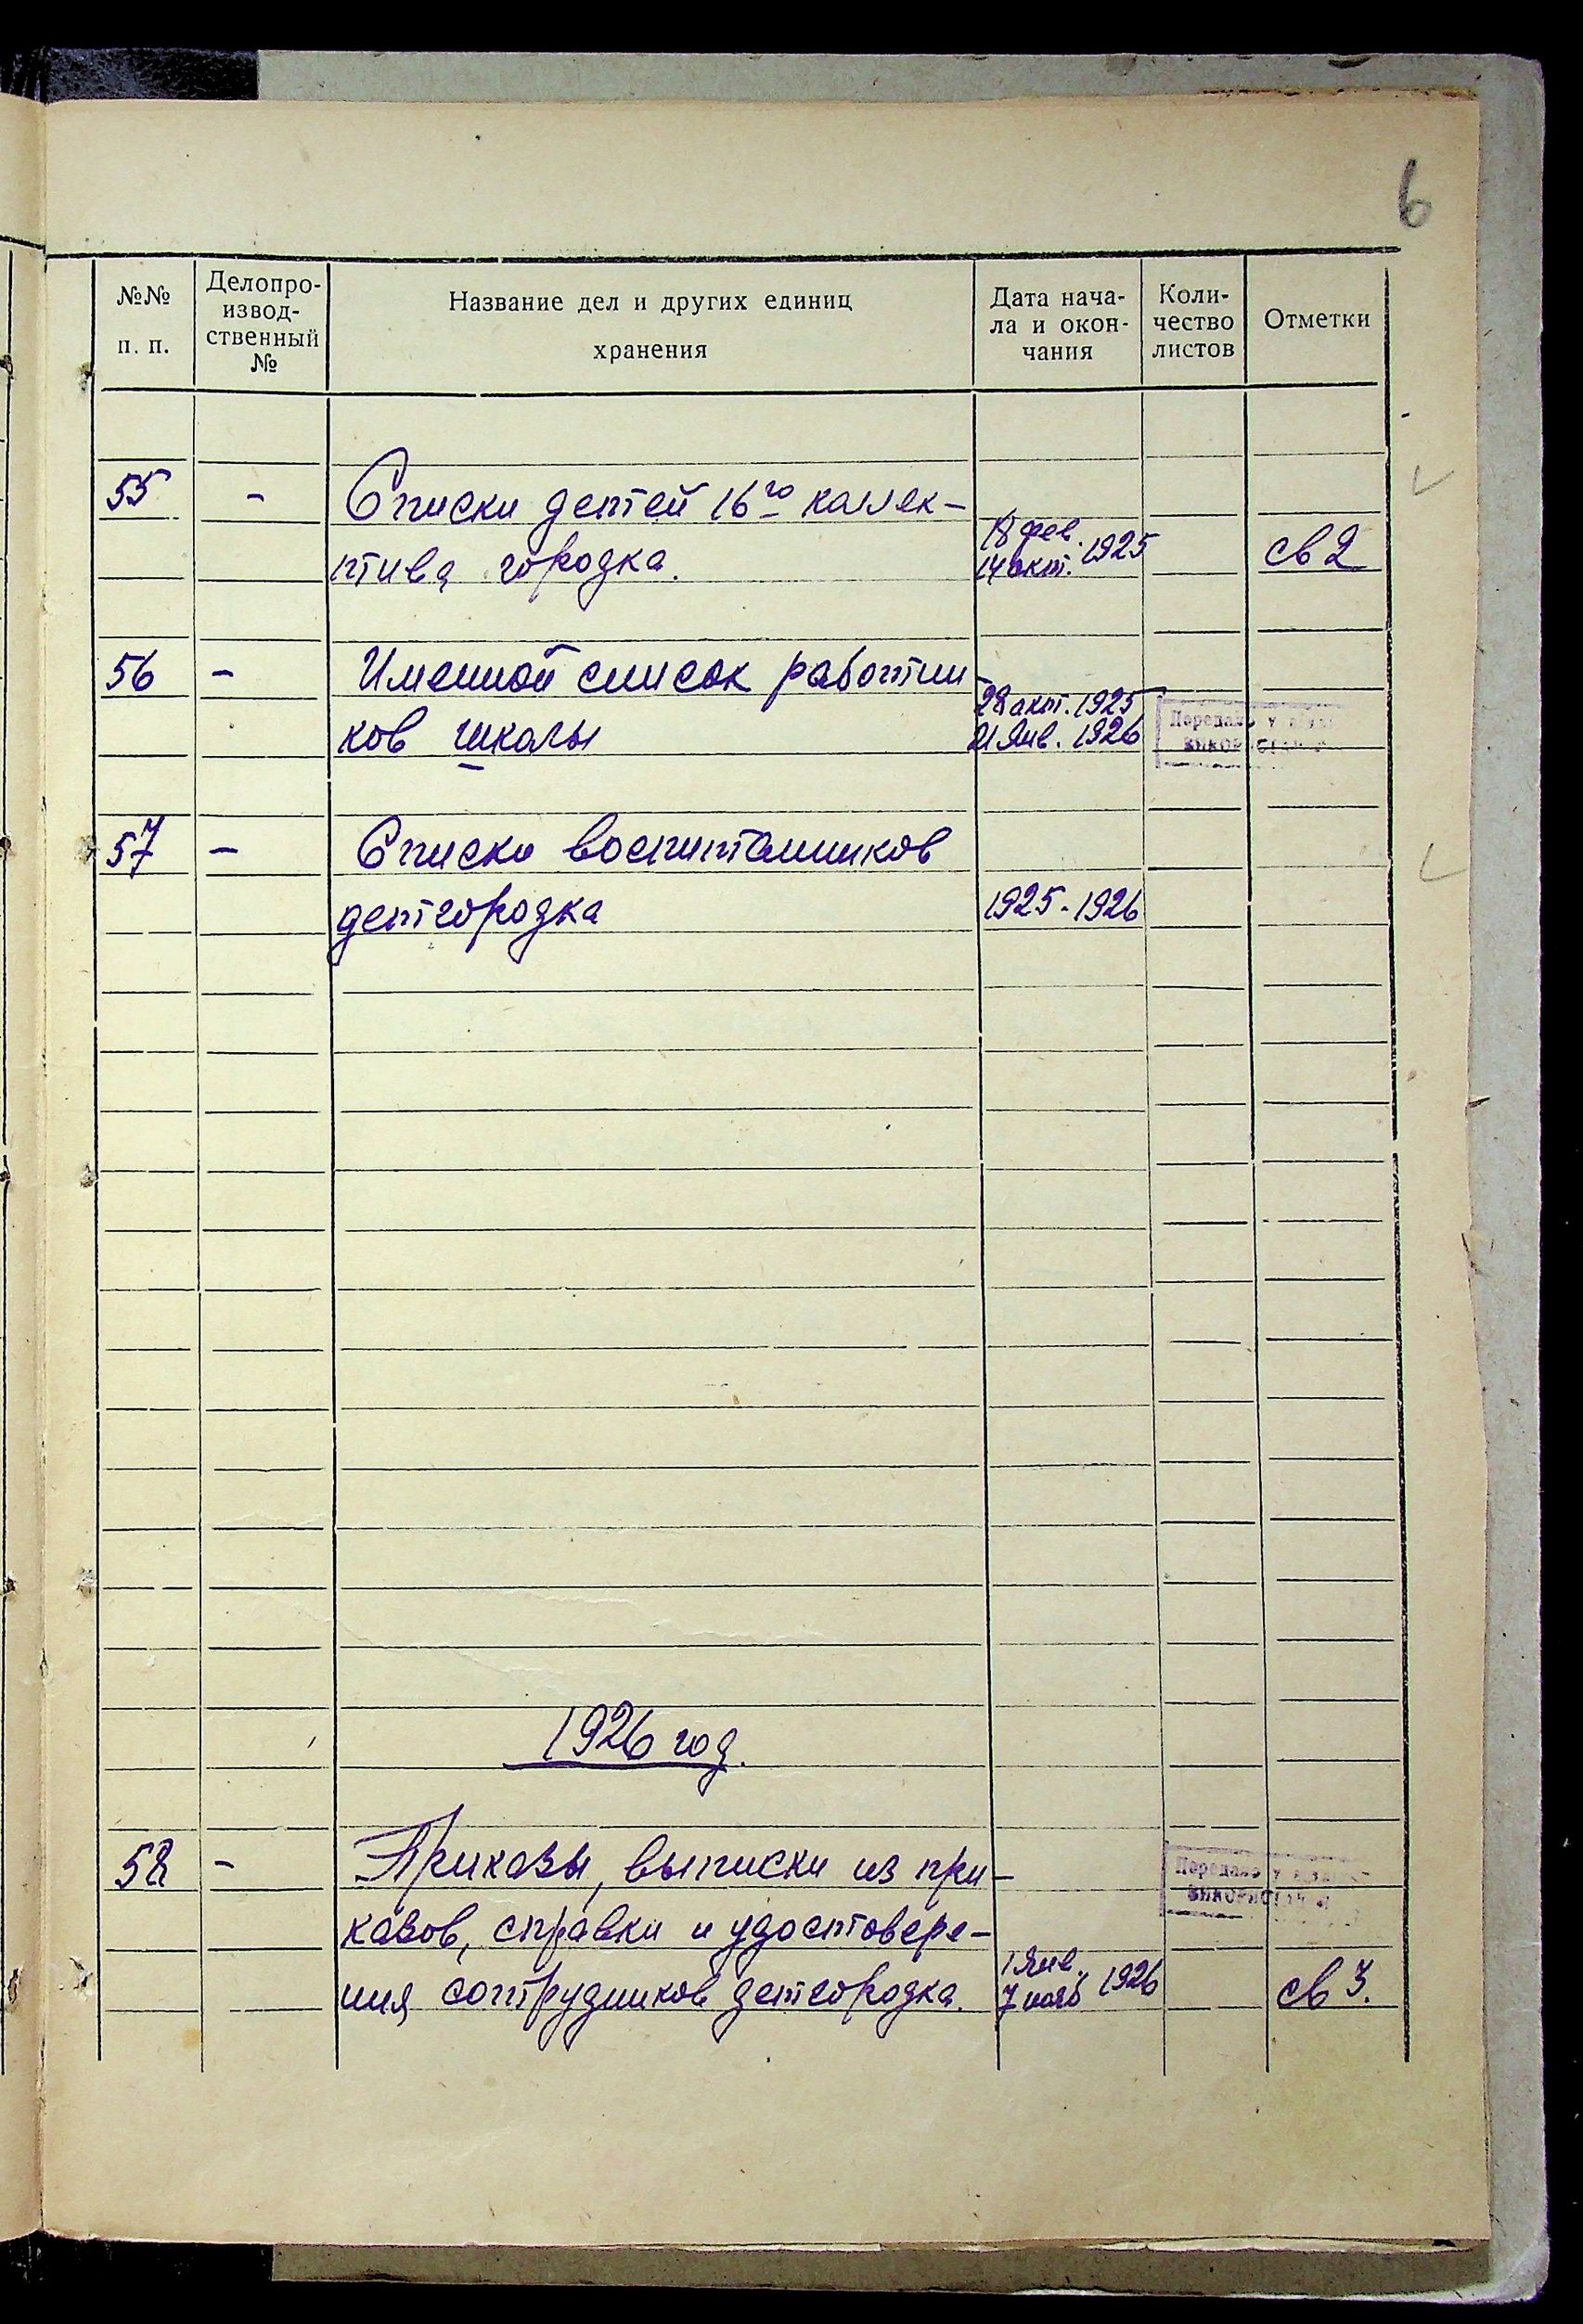 6
№№ п. п.
Делопро-
извод-
ственный
№
Название дел и других единиц
хранения
Дата нача-
ла и окон-
чания
Коли-
чество
листов
Отметки
55 - Списки детей 16го коллек-
тива городка.
18 фев.
14 окт. 1925
св 2
56 - Именной список работни-
ков школы
28 окт. 1925
21 янв. 1926
57 - Списки воспитанников
детгородка
1925-1926
1926 год.
58 - Приказы, выписки из при-
казов, справки и удостовере-
ния сотрудников детгородка.
1 янв.
7 нояб 1926
св 3.